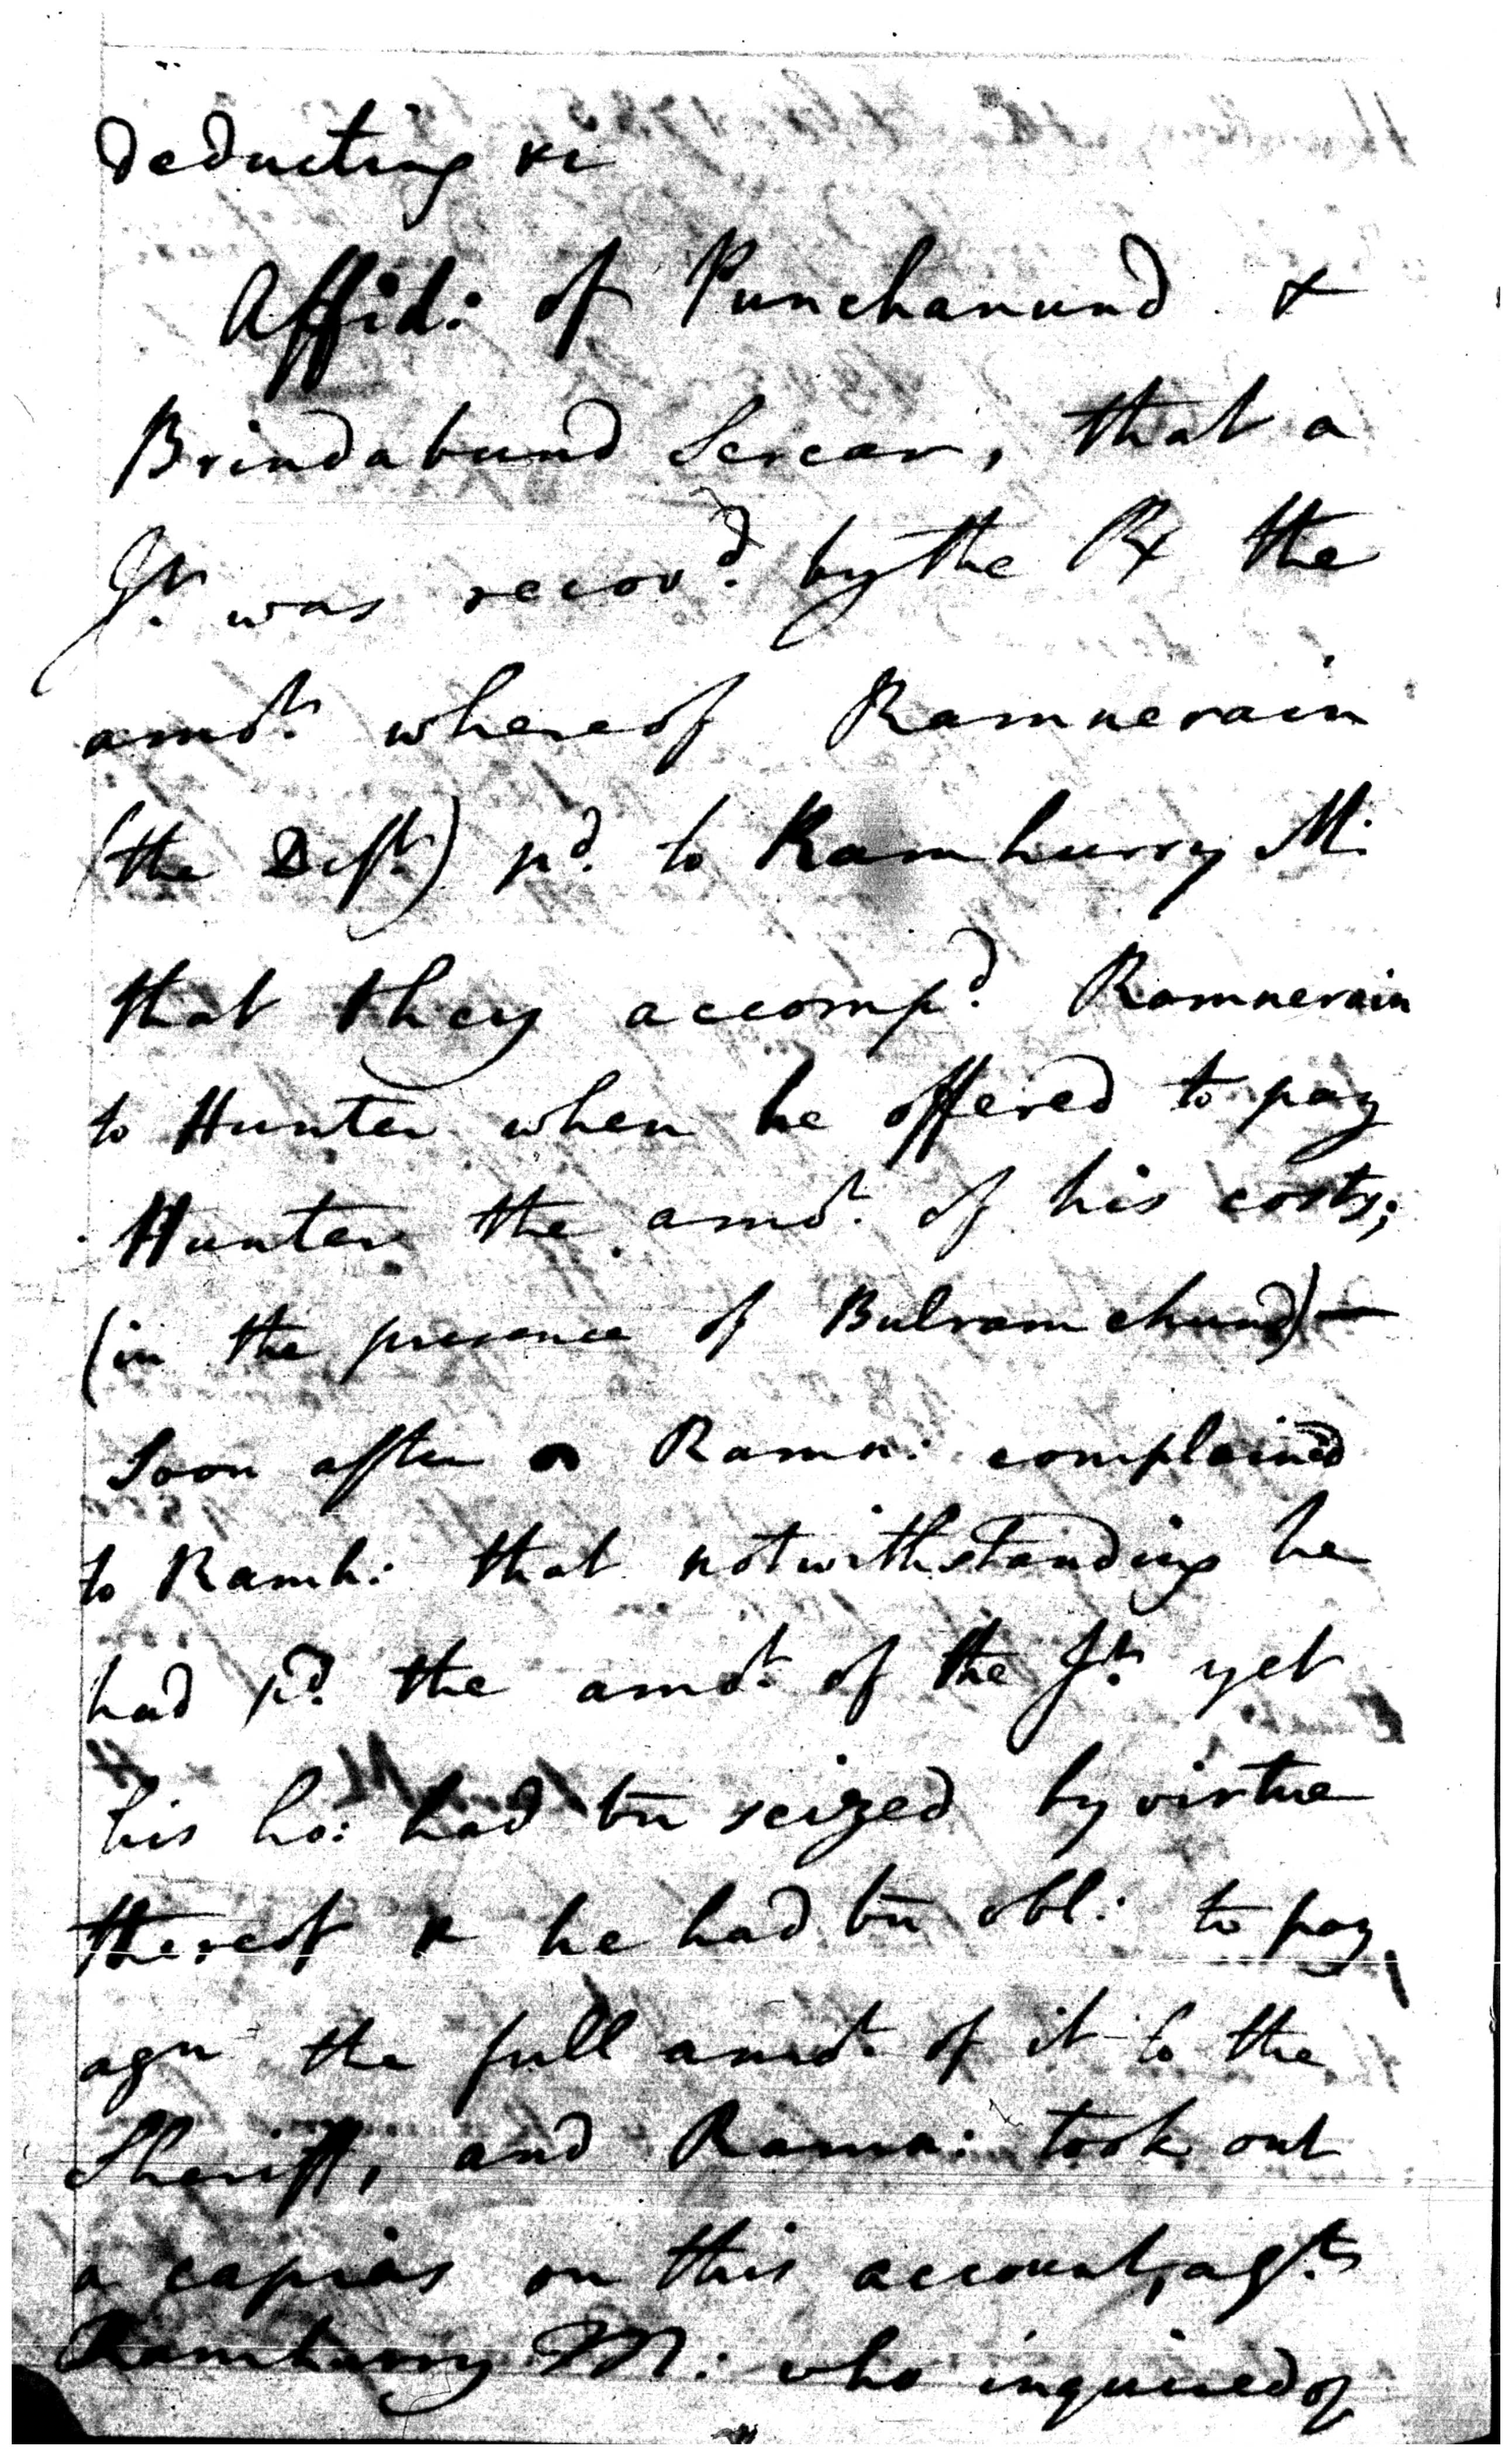 deducting &c
Affid: of Punchanund &
Brindabund Sercar, that a
Jt. was recovd. by the Px the
amot. whereof Ramnerain
(the Deft.) pd. to Ramhurry M:
that they accompd. Ramnerain
to Hunter when he offered to pay
Hunter the amot. of his costs;
(in the presence of Bulramchund)—
Soon after Ramn: complained
to Ramh: that notwithstanding he
had pd. the amot. of the Jt. yet
his ho: had bn seized by virtue
thereof & he had bn obl: to pay
agn the full amot. of it to the
Sheriff, and Ramn: took out
a capias on this account, agt.
Ramhurry M: who inquired of